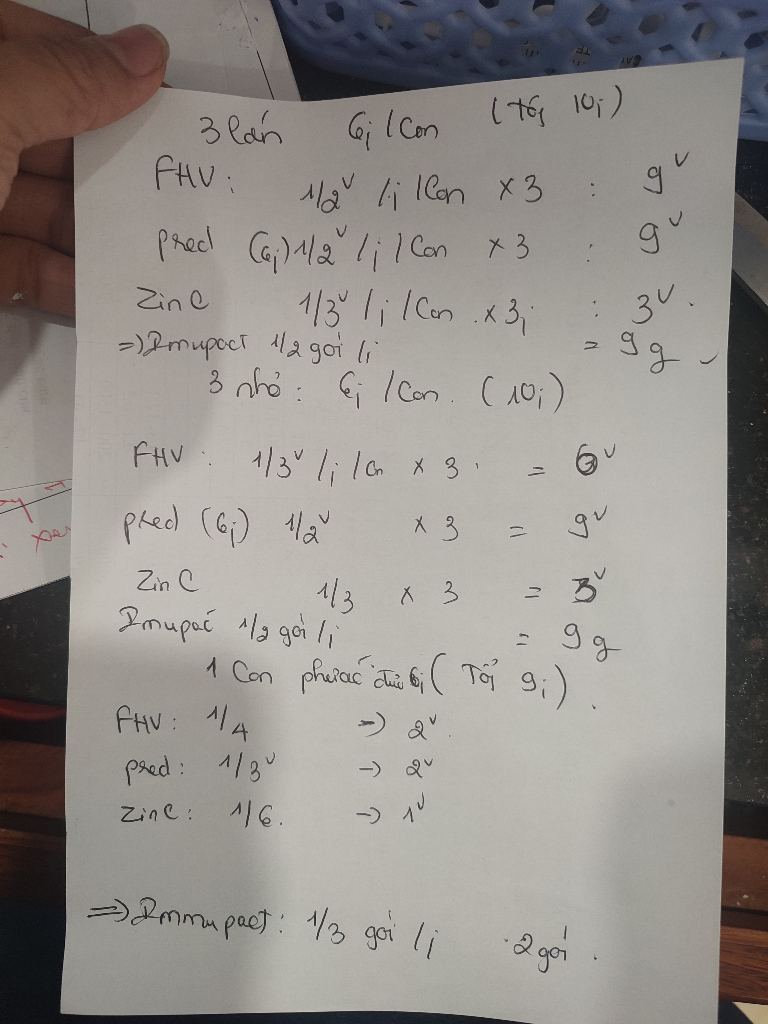 3 lớn 6j / Con (Tối 10j)
FHV: 1/2v /j /Con x 3 : 9v
pred (6j) 1/2v /j / Con x 3 : 9v
ZinC 1/3v /j / Con x 3j : 3v.
=> Imupact 1/2 gói /j = 9g
3 nhỏ: 6j / Con. (10j)
FHV: 1/3v /j /Cn x 3 = 6v
pred (6j) 1/2v x 3 = 9v
ZinC 1/3 x 3 = 3v
Imupac 1/2 gói /j = 9g
1 Con 6j (Tối 9j).
FHV: 1/4 -> 2v.
pred: 1/3v -> 2v
ZinC: 1/6. -> 1v
=> Immupact: 1/3 gói /j 2 gói.